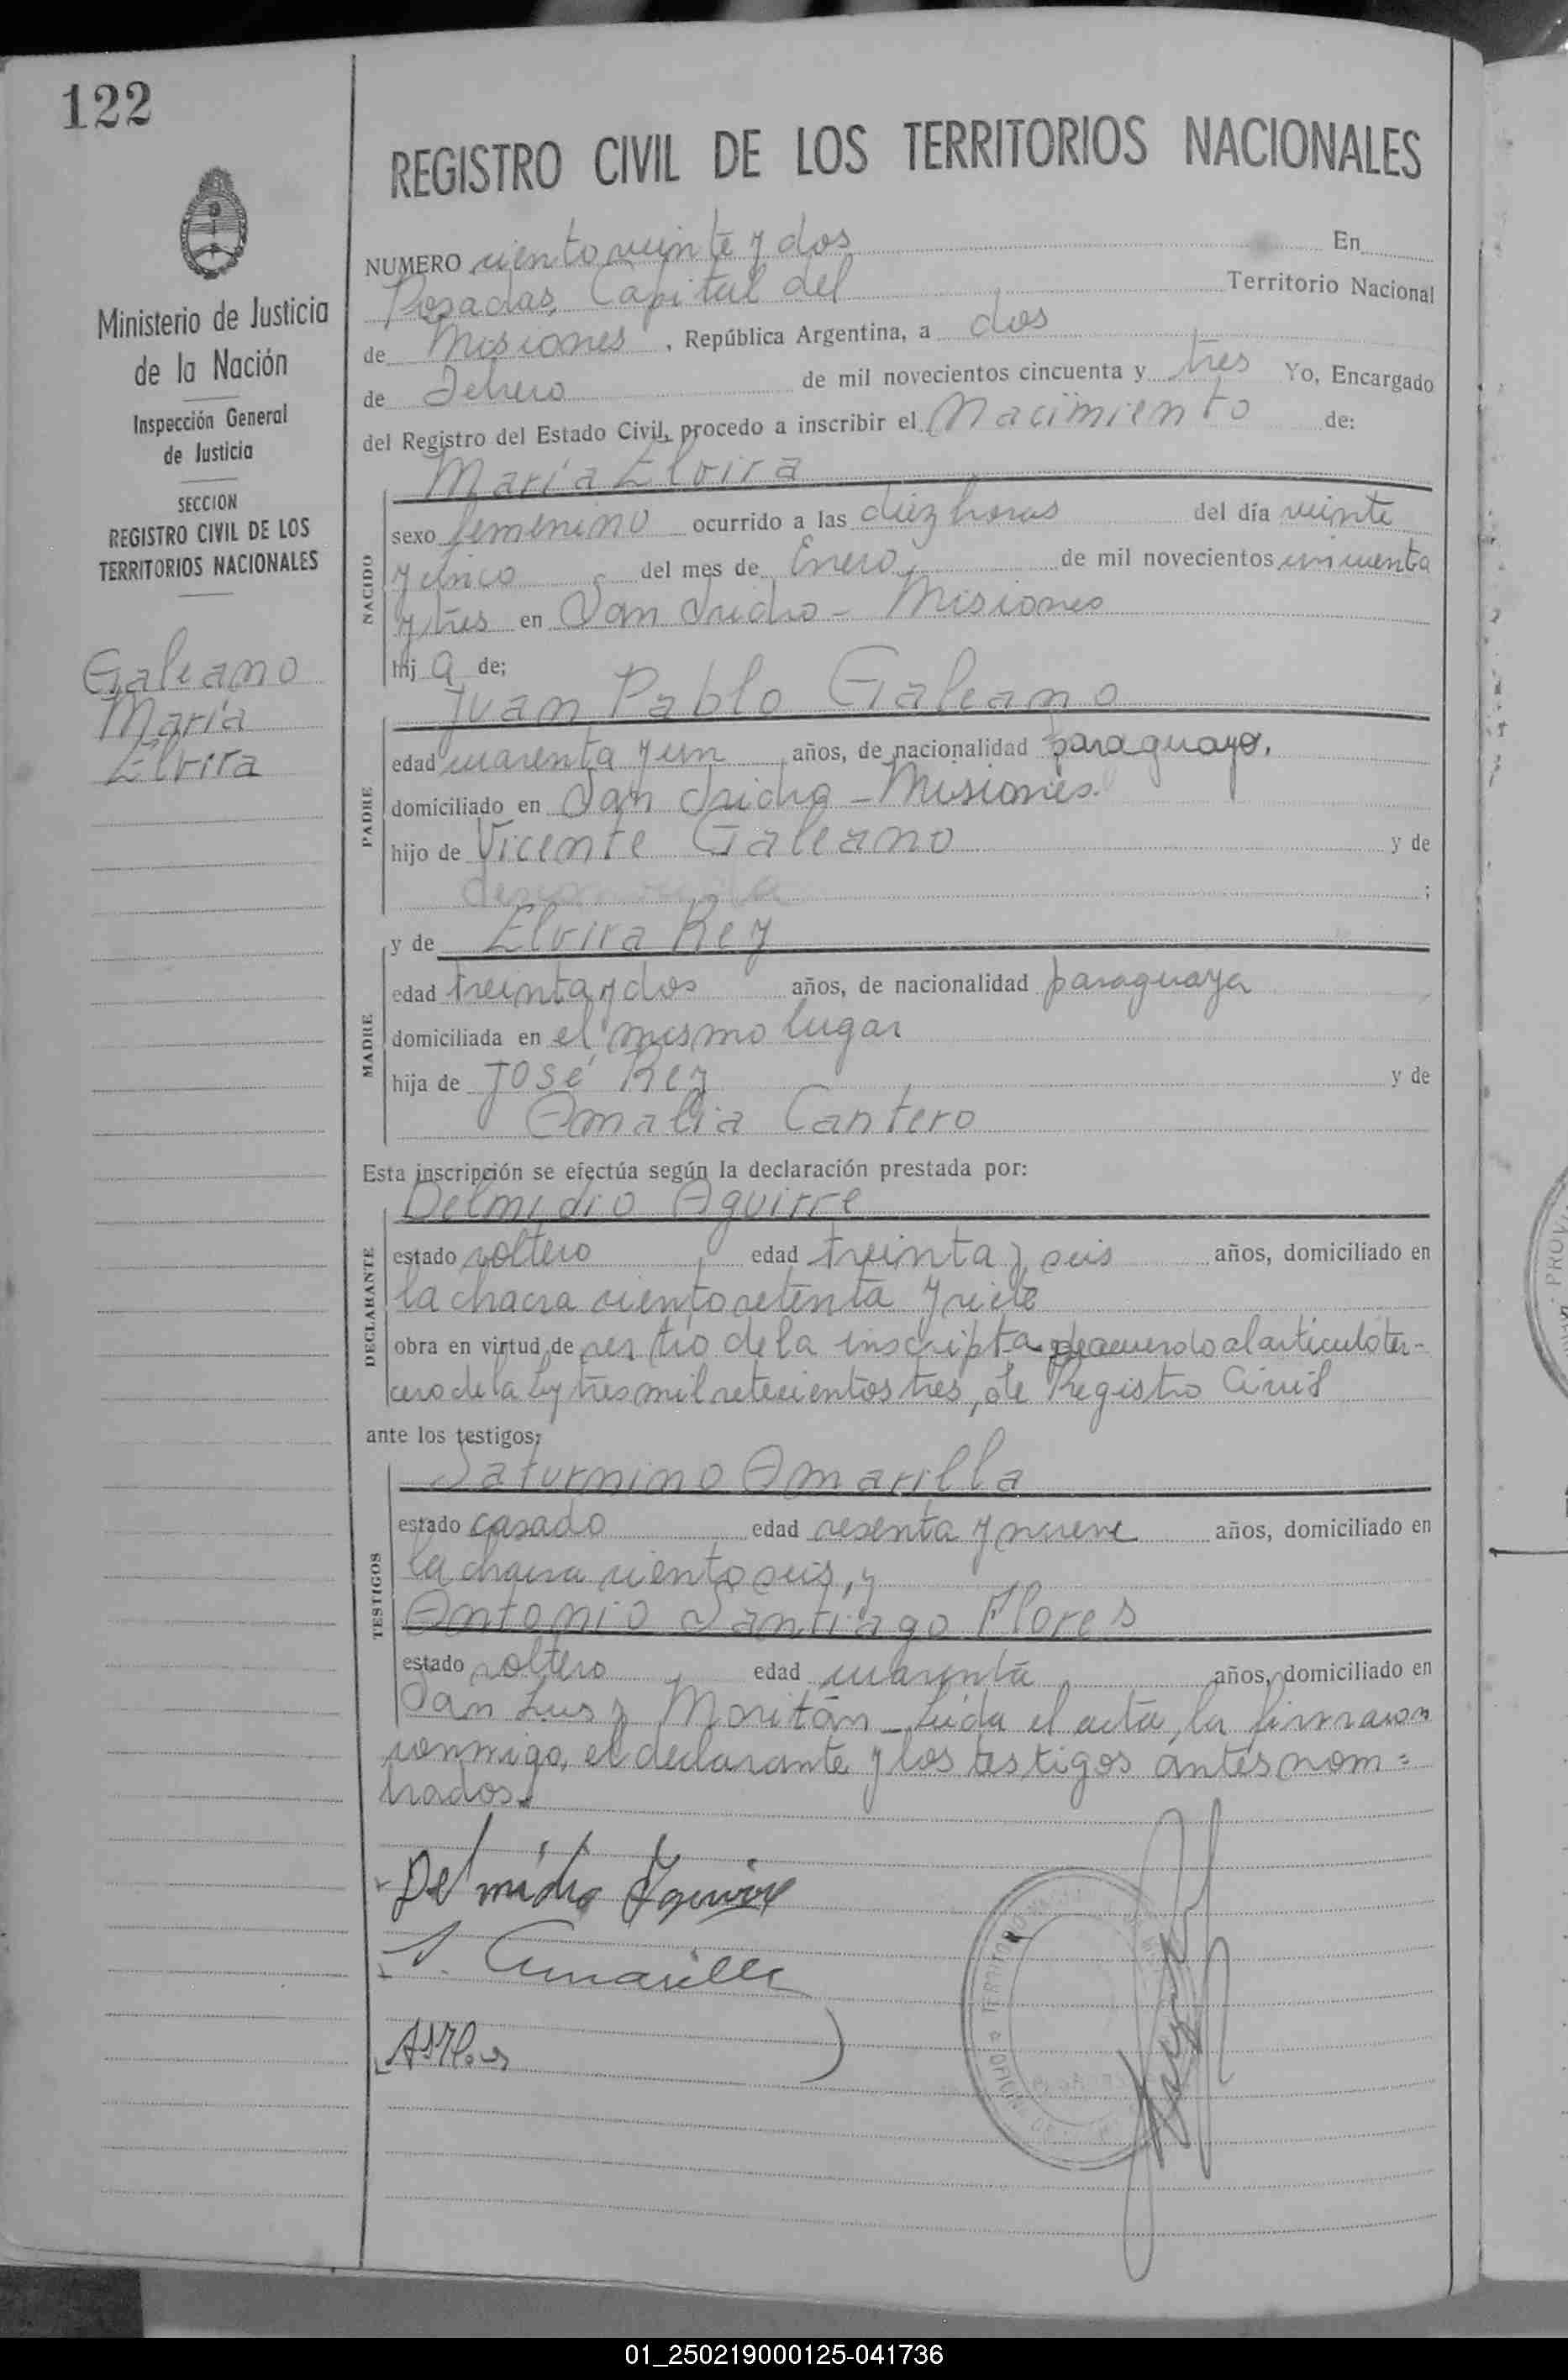 122
REGISTRO CIVIL DE LOS TERRITORIOS NACIONALES
Ministerio de Justicia
de la Nación
Inspección General
de Justicia
SECCION
REGISTRO CIVIL DE LOS
TERRITORIOS NACIONALES
Galeano
María
Elvira
NUMERO ciento veinte y dos En
Posadas, Capital del Territorio Nacional
de Misiones, República Argentina, a dos
de Febrero de mil novecientos cincuenta y tres Yo, Encargado
del Registro del Estado Civil, procedo a inscribir el Nacimiento de:
María Elvira
NACIDO
sexo femenino ocurrido a las diez horas del día veinte
y cinco del mes de Enero de mil novecientos cincuenta
y tres en San Isidro - Misiones
hij a de;
Juan Pablo Galeano
PADRE
edad cuarenta y un años, de nacionalidad paraguayo.
domiciliado en San Isidro - Misiones.
hijo de Vicente Galeano y de
;
y de Elvira Rey
MADRE
edad treinta y dos años, de nacionalidad paraguaya
domiciliada en el mismo lugar
hija de José Rey y de
Amalia Cantero
Esta inscripción se efectúa según la declaración prestada por:
Delmidio Aguirre
DECLARANTE
estado soltero edad treinta y seis años, domiciliado en
la chacra ciento setenta y siete
obra en virtud de ser tío de la inscripta de acuerdo al artículo ter-
cero de la Ley tres mil setecientos tres, de Registro Civil
ante los testigos;
Saturnino Amarilla
TESTIGOS
estado casado edad sesenta y nueve años, domiciliado en
la chacra ciento seis, y
Antonio Santiago Flores
estado soltero edad cuarenta años, domiciliado en
San Luis y Moritán - Leída el acta, la firmaron
conmigo, el declarante y los testigos antes nom=
brados.
Delmidio Aguirre
S. Amarilla
ASFlores
01_250219000125-041736